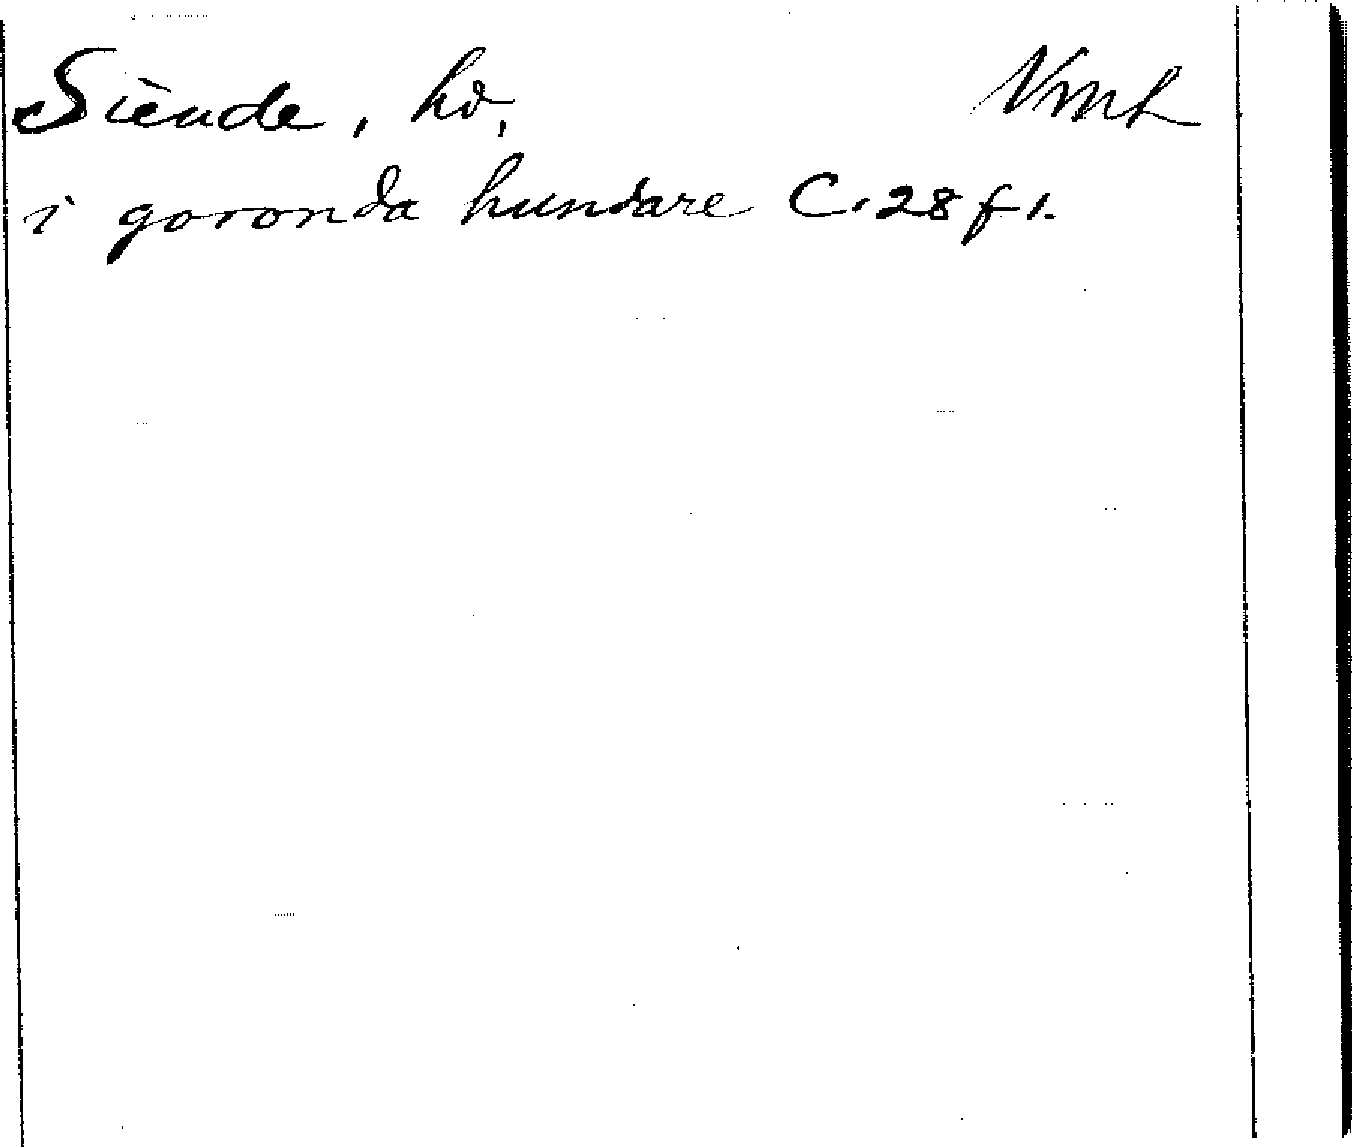 Siènde, hd, Vml
i goronda hundare C. 28 f 1.